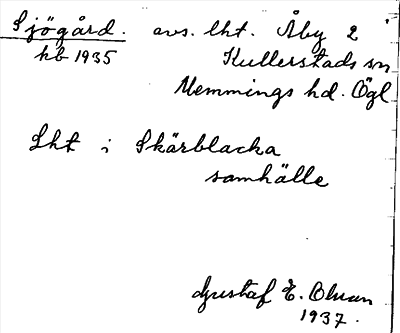 Sjögård. avs. lht. Åby 2
hb 1935 Kullerstads sn
Memmings hd. Ögl
Lht i Skärblacka
samhälle
Gustaf E. Olsson
1937.